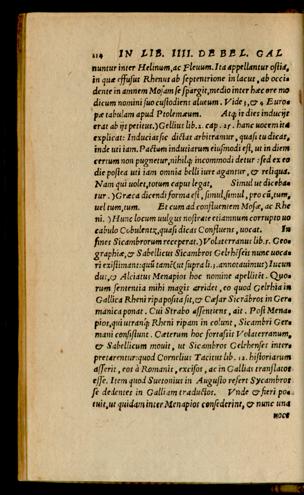 214 IN LIB. IIII. DE BEL. GAL
nuntur inter Helinum, ac Fleuum. Ita appellantur ostia,
in quæ effusus Rhenus ab septentrione in lacus, ab occi
dente in amnem Mosam se spargit, medio inter hæc ore mo
dicum nomini suo custodiens alueum. Vide 3, & 4 Euro-
pæ tabulam apud Ptolemæum. Atq; in dies inducijs
erat ab ijs petitus.) Gellius lib. 1. cap. 25. hanc uocem ita
explicat: Inducias sic dictas arbitrantur, quasi tu dicas,
inde uti iam. Pactum induciarum eiusmodi est, ut in diem
certum non pugnetur, nihilq; incommodi detur: sed ex eo
die postea uti iam omnia belli iure agantur, & reliqua.
Nam qui uolet, totum caput legat. Simul ue diceba-
tur.) Græca dicendi forma est, simul, simul, pro cũ, tum,
uel tum, tum. Et cum ad confluentem Mosæ, ac Rhe
ni.) Hunc locum uulgus nostrate etiamnum corrupto uo
cabulo Cobulentz, quasi dicas Confluens, uocat. In
fines Sicambrorum receperat.) Volaterranus lib. 2. Geo-
graphiæ, & Sabellicus Sicambros Gelrhēseis nunc uoca-
ri existimant: quũ tamē (ut supra li. 3. annotauimus) Iucun
dus, & Alciatus Menapios hoc nomine apellitēt. Quo-
rum sententia mihi magis arridet, eo quod Gelrhia in
Gallica Rheni ripa posita sit, & Cæsar Sicābros in Ger
manica ponat. Cui Strabo assentiens, ait. Post Mena-
pios, qui utranq; Rheni ripam in colunt, Sicambri Ger
mani consistunt. Cæterum hoc fortassis Volaterranum,
& Sabellicum mouit, ut Sicambros Gelrhenses inter-
pretarentur: quod Cornelius Tacitus lib. 12. historiarum
asserit, eos à Romanis, excisos, ac in Gallias translatos
esse. Item quod Suetonius in Augusto refert Sycambros
se dedentes in Galliam traductos. Vnde & fieri po-
tuit, ut quidam inter Menapios consederint, & nunc una
uoce